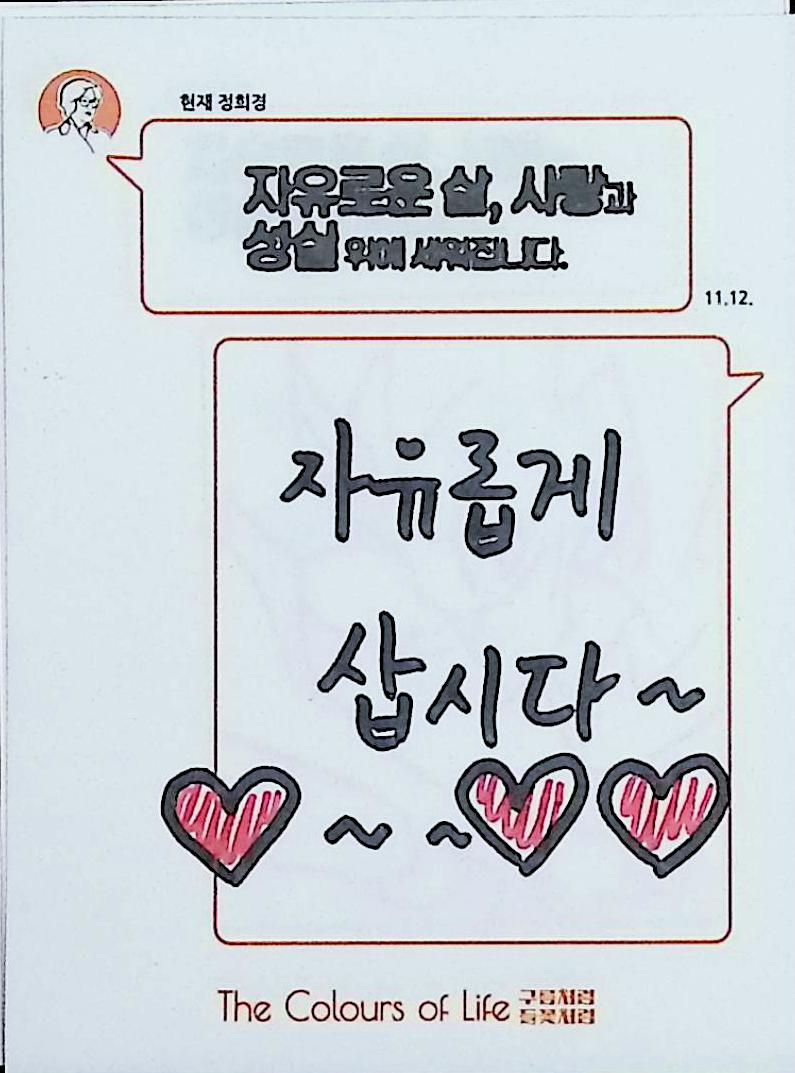 현재 정희경
자유로운 삶, 사랑과
성실 위에 세워집니다.
11.12.
자유롭게
삽시다~
~ ~
The Colours of Life 구름처럼
들꽃처럼